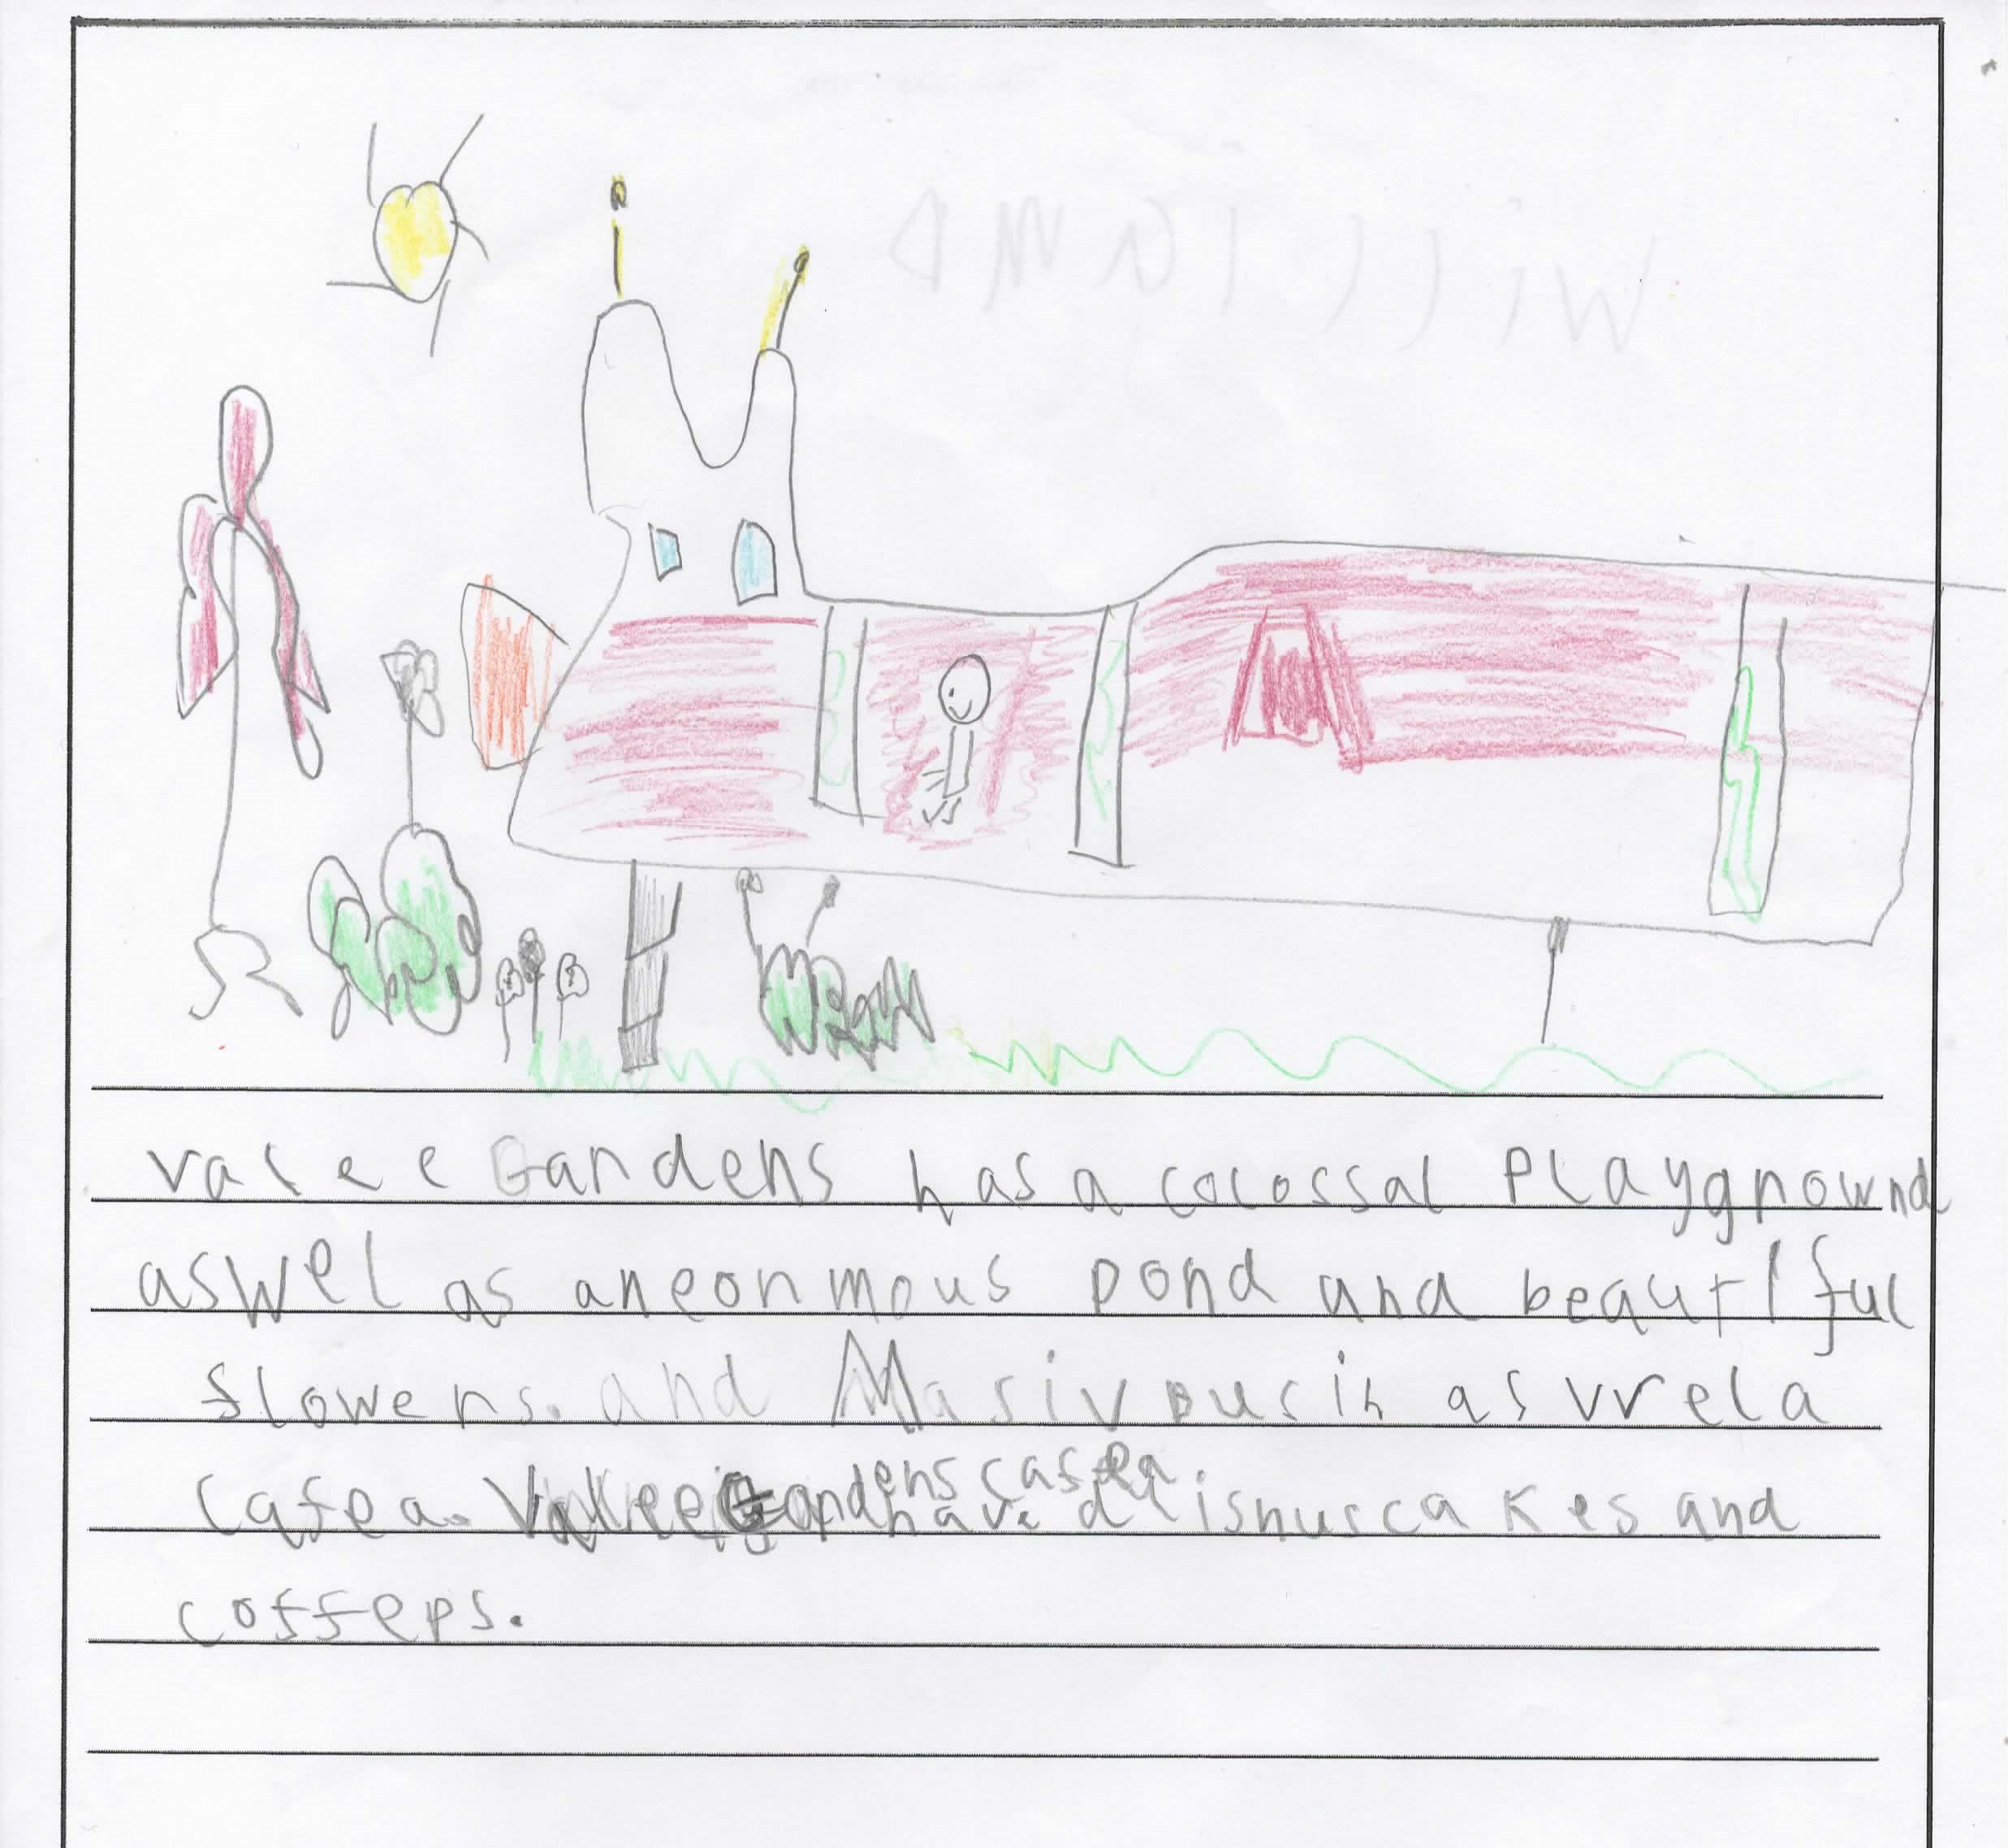 valee Gardens has a colossal Playgrownd
aswel as aneonmous pond and beautiful
flowers. and Masiv as wel a
cafea. Valee Gardens cafea have cakes and
coffees.